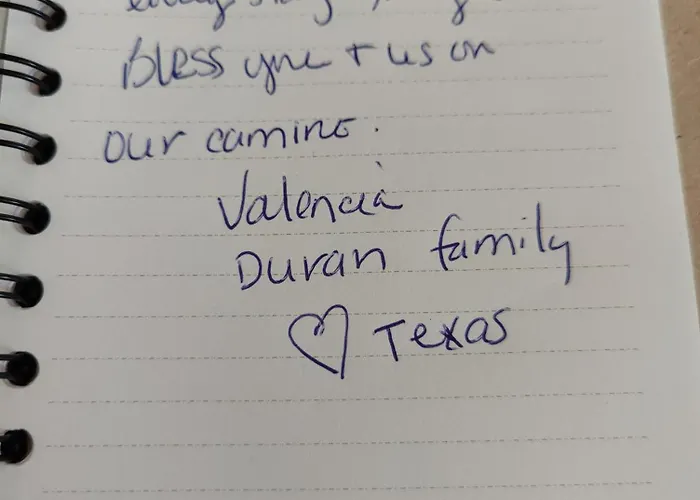 Bless you + us on
our camino.
Valencia
Duran family
♡ Texas